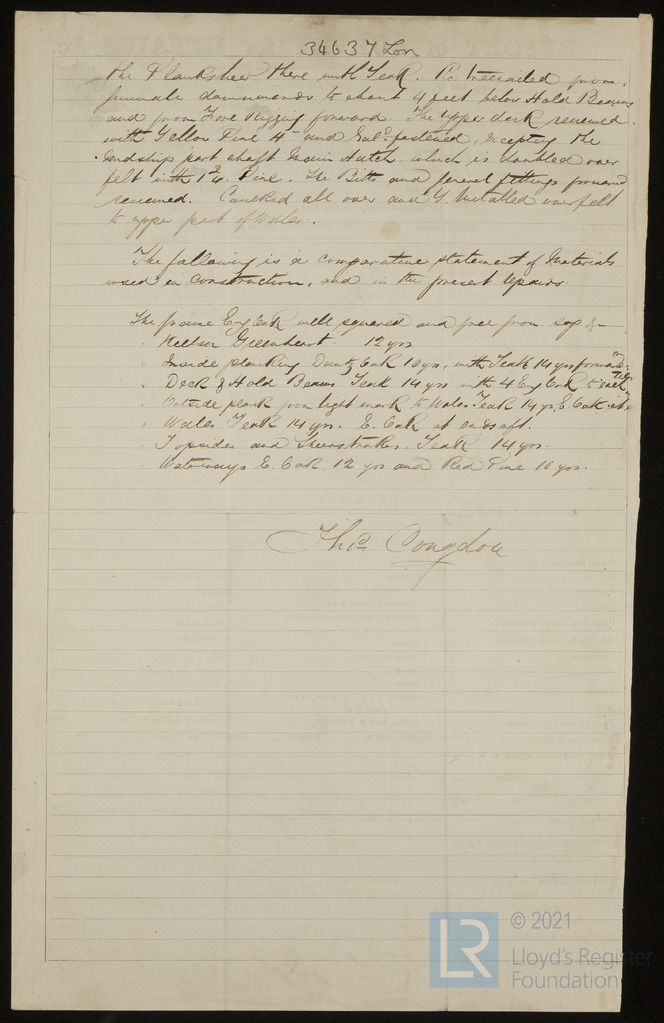 34637 Lon
the Planksheer there with Teak. Re treenailed from
gunwale downwards to about 4 feet below Hold Beams
and from Fore Rigging forward. The upper deck renewed
with Yellow Pine 4" and Gal. fastened, excepting the
midship part abaft Main Hatch which is doubled over
felt with 1¾ Pine. The Bitts and general fittings forward
renewed. Caulked all over and Y. Metalled over felt
to upper part of Wales.
The following is a comparative statement of Materials
used in construction, and in the present repairs.
The frame Eng Oak well squared and free from sap &-
" Keelson Greenheart 12 yrs
" Inside planking Dantz Oak 10 yrs, with Teak 14 yrs forward
" Deck & Hold Beams Teak 14 yrs with 4 Eng Oak to each
" Outside plank from light mark to Wales Teak 14 yrs, E Oak
" Wales Teak 14 yrs. E. Oak at ends aft.
" Topsides and Sheerstrakes, Teak 14 yrs.
Waterways E. Oak 12 yrs and Red Pine 10 yrs.
Thos Congdon
LR © 2021
Lloyd's Register
Foundation